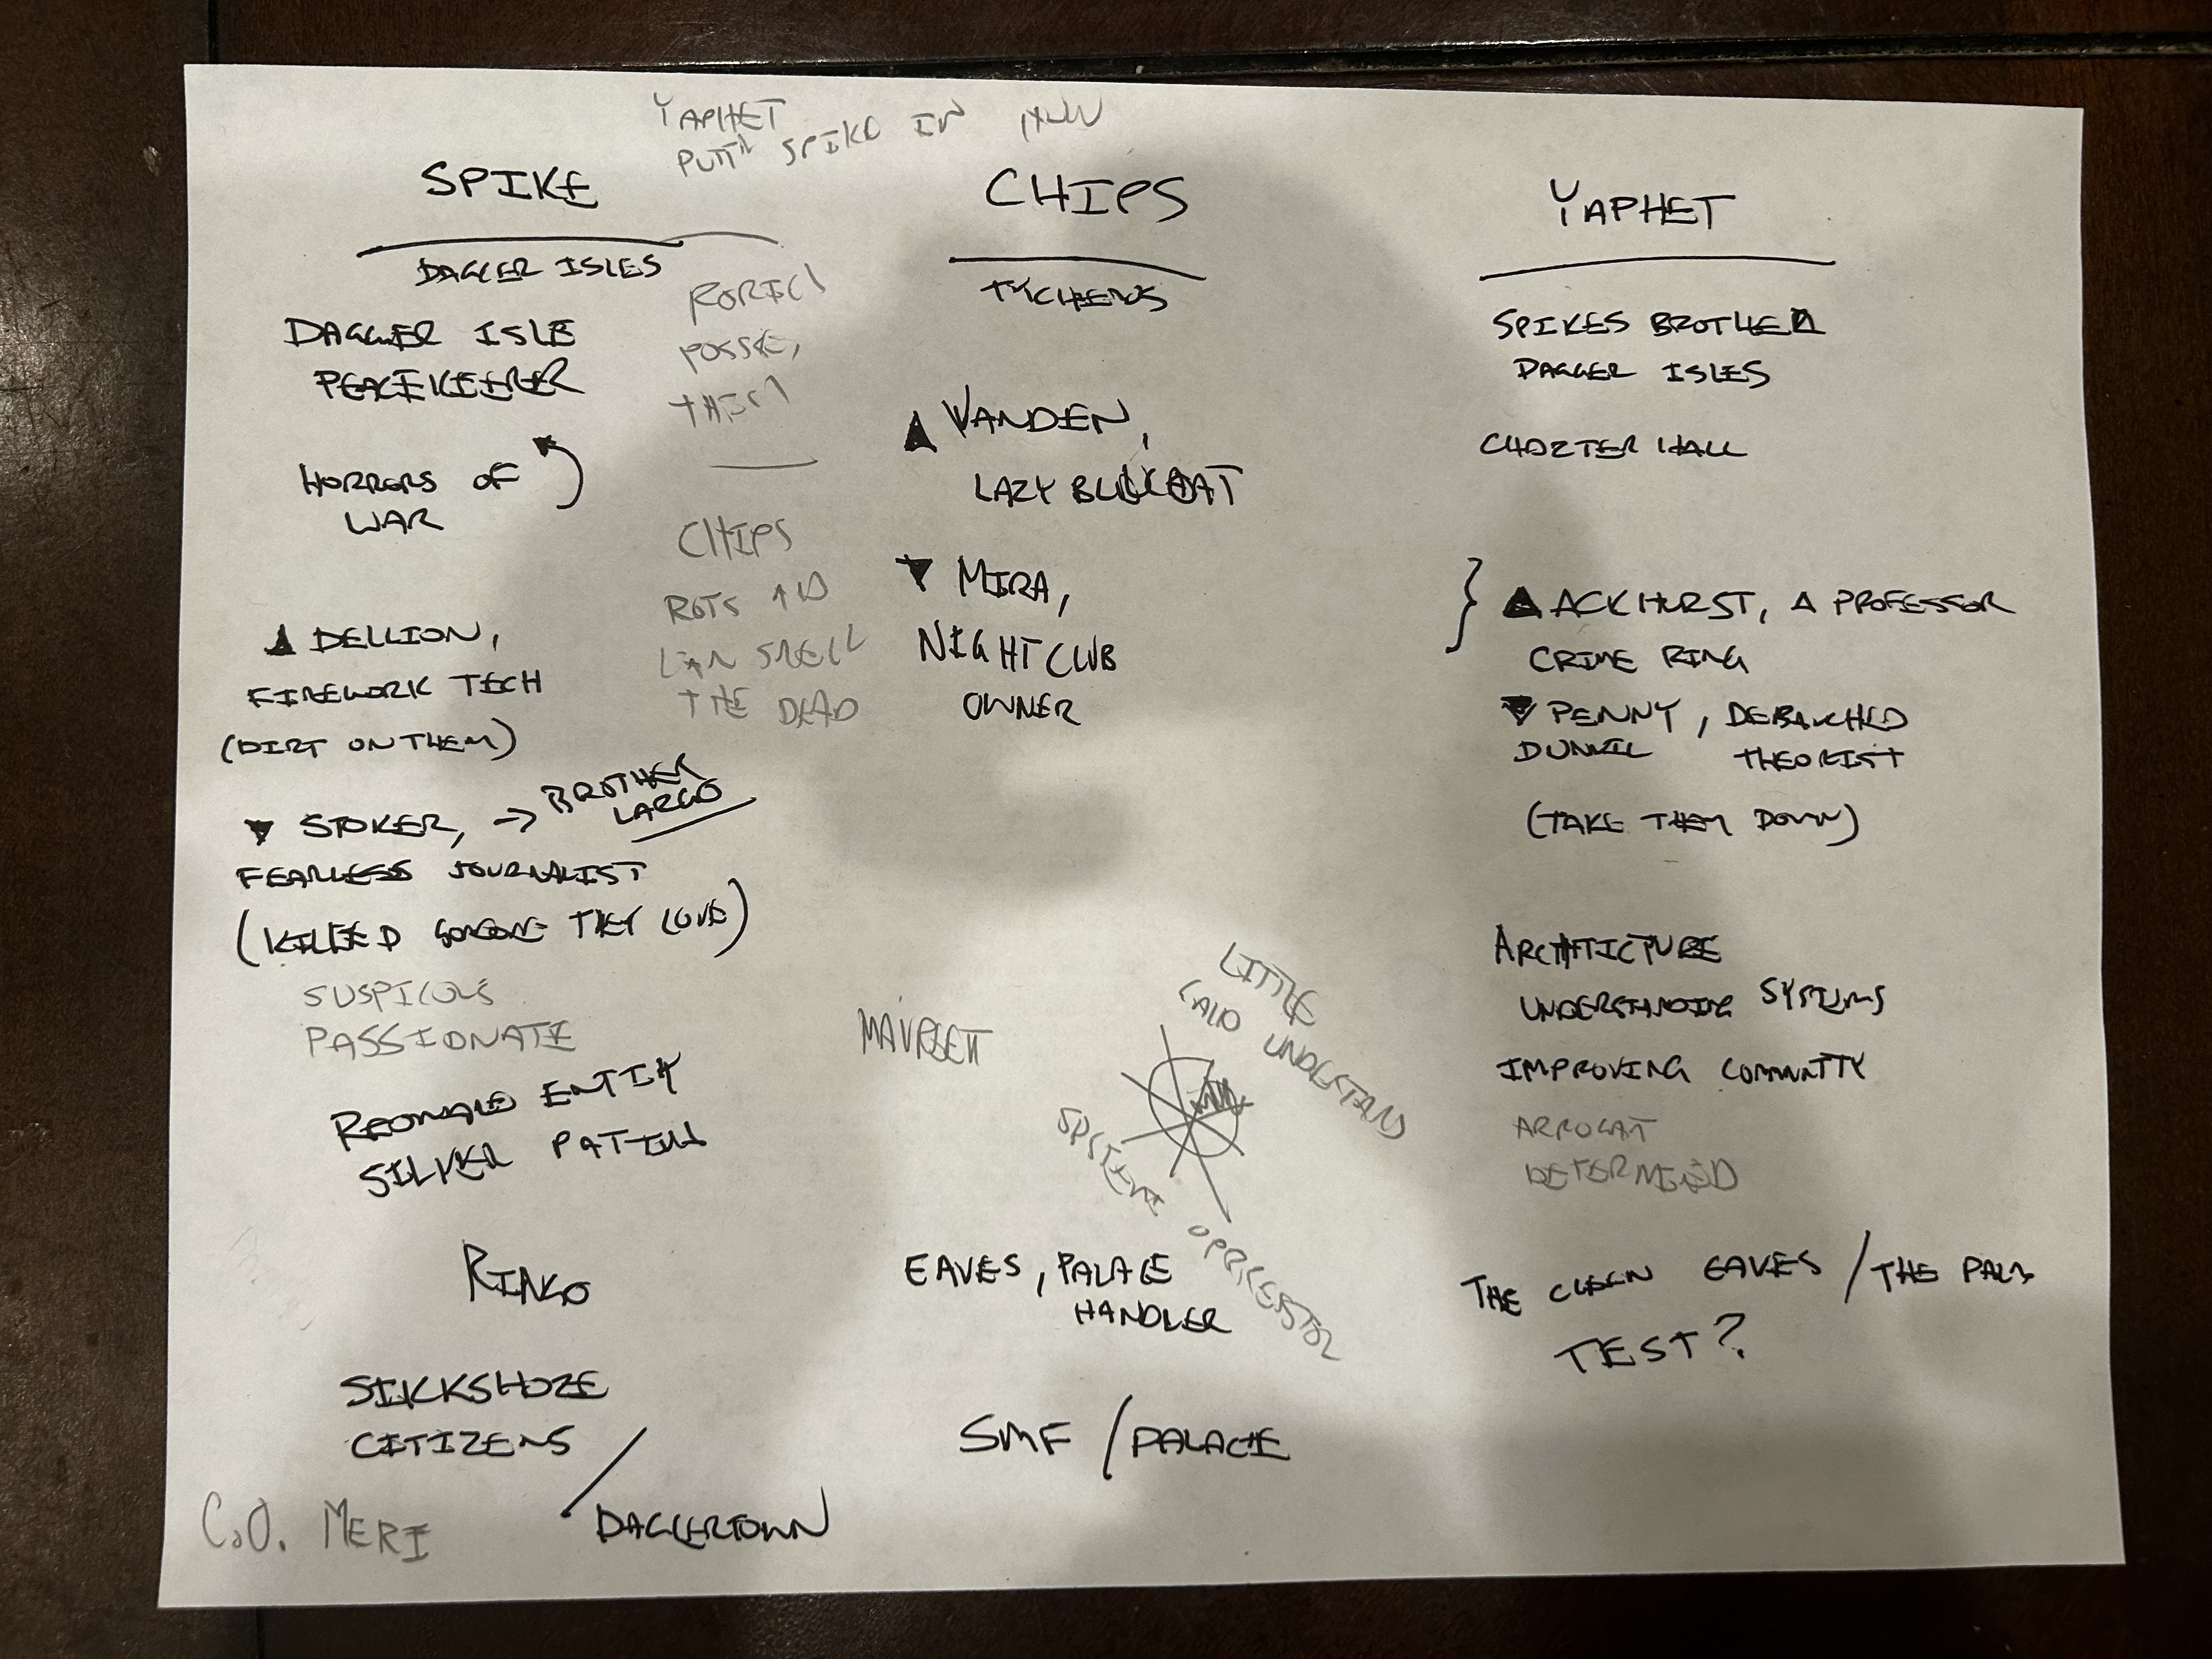 YAPHET
PUTT SPIKE IN
SPIKE
DAGGER ISLES
DAGGER ISLE
PEACEKEEPER
HORRORS OF
WAR
▲ DELLION,
FIREWORK TECH
(DIRT ON THEM)
▼ STOKER, → BROTHER
LARGO
FEARLESS JOURNALIST
(KILLED SOMEONE THEY LOVE)
SUSPICOUS
PASSIONATE
ENTITY
SILVER
RINGO
SILKSHOZE
CITIZENS
/ DAGGERTOWN
C.O. MERI
POSSE,
CHIPS
CAN SMELL
THE DEAD
CHIPS
TYCHEROS
▲ VANDEN,
LAZY BLUECOAT
▼ MIRA,
NIGHTCLUB
OWNER
LITTLE
UNDESTAND
SYSTEM OPPRESSOR
EAVES, PALACE
HANDLER
SMF / PALACE
YAPHET
SPIKES BROTHER
DAGGER ISLES
CHOZTER HALL
} ▲ ACKHURST, A PROFESSOR
CRIME RING
▼ PENNY, DEBAUCHED
DUNVIL THEORIST
(TAKE THEM DOWN)
ARCHTICTURE
UNDERSTANDING SYSTEMS
IMPROVING COMMUNTTY
ARROGAT
DETERMINED
THE EAVES / THE
TEST?